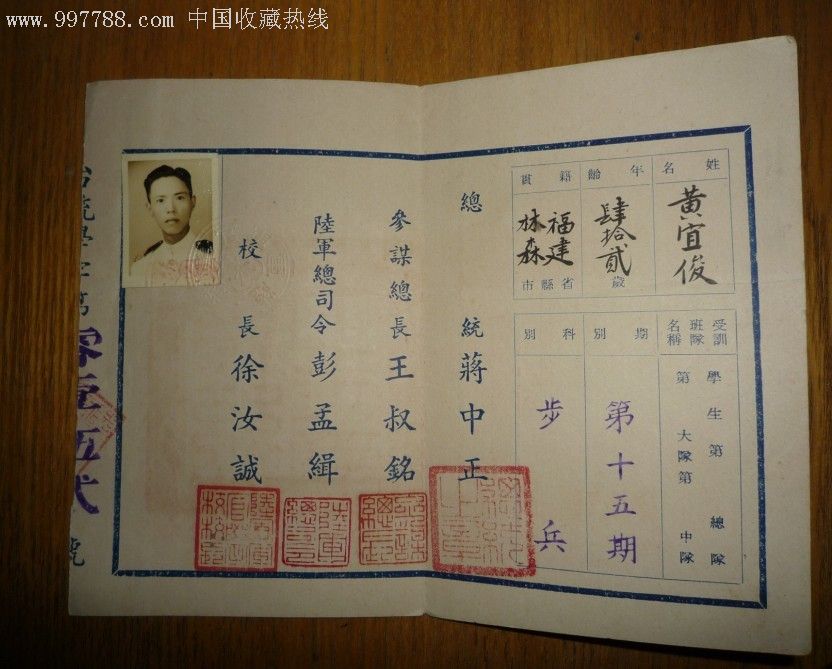 www.997788.com 中国收藏热线
姓名
黃宜俊
年齡
肆拾貳
歲
籍貫
福建
林森
省縣市
受訓班隊名稱
學生第 總隊
第 大隊第 中隊
期別
第十五期
科別
步兵
總統 蔣中正
參謀總長 王叔銘
陸軍總司令 彭孟緝
校長 徐汝誠
號